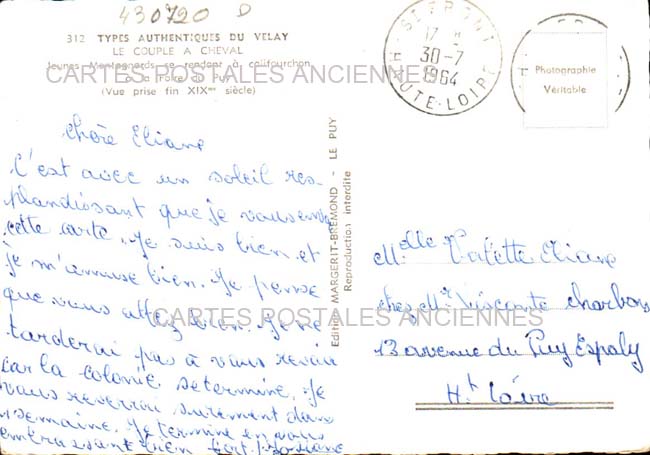 430720 D
312 TYPES AUTHENTIQUES DU VELAY
LE COUPLE A CHEVAL
Jeunes Montagnards se rendant à califourchon
à la Foire du Puy
(Vue prise fin XIXme siècle)
CARTES POSTALES ANCIENNES
17 H
30-7
1964
HAUTE-LOIRE
Photographie
Véritable
chère Eliane
C'est avec un soleil res-
plandissant que je vous envoie
cette carte. Je suis bien et
je m'amuse bien. Je pense
que vous allez bien. Je ne
tarderai pas à vous revoir
car la colonie se termine. Je
vous reverrai surement dans
1 semaine. Je termine en vous
embrassant bien fort.
Edition MARGERIT-BREMOND - LE PUY
Reproduction interdite
Melle Valette Eliane
chez Mr Visconte charbons
13 avenue du Puy Espaly
Hte Loire
CARTES POSTALES ANCIENNES